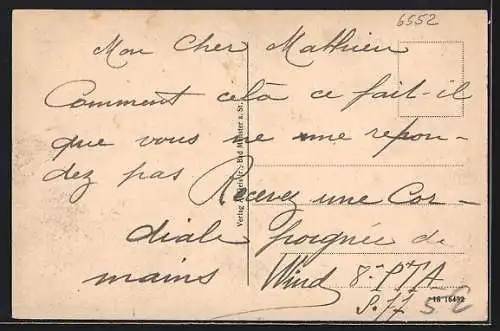 6552
Mon cher Mathieu
Comment cela ce fait-il
que vous ne me repon-
dez pas Recevez une Cor-
diale poignée de
mains
Wind 8e PTA
S. 77
Verlag Bad Münster a. St.
18 16432